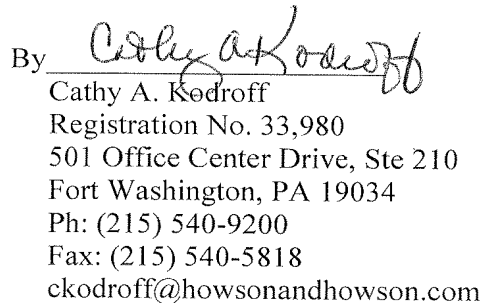 By Cathy A Kodroff
Cathy A. Kodroff
Registration No. 33,980
501 Office Center Drive, Ste 210
Fort Washington, PA 19034
Ph: (215) 540-9200
Fax: (215) 540-5818
ckodroff@howsonandhowson.com